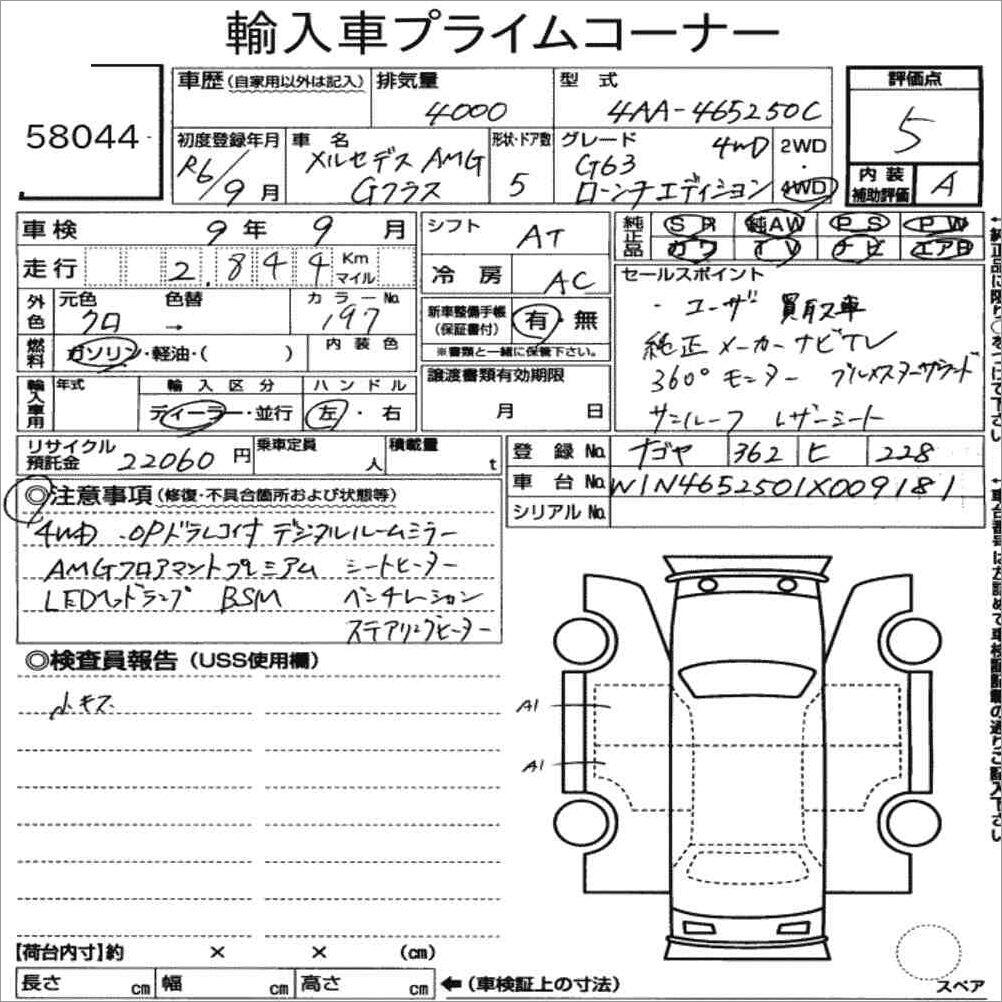 輸入車プライムコーナー
58044
車歴(自家用以外は記入) 排気量 4000 型式 4AA-465250C
評価点 5
初度登録年月 R6/9月 車名 メルセデスAMG Gクラス 形状・ドア数 5 グレード G63 4WD ローンチエディション 2WD・4WD
内装補助評価 A
車検 9年 9月
走行 2,844 Km マイル
シフト AT
冷房 AC
純正品 SR 純AW PS PW
カワ TV ナビ エアB
外色 元色 クロ 色替 → カラーNo. 197
燃料 ガソリン・軽油・( ) 内装色
新車整備手帳(保証書付) 有・無
※書類と一緒に保管下さい。
セールスポイント
・ユーザー買取車
純正メーカーナビTV
360°モニター ブルメスターサラウンド
サンルーフ レザーシート
輸入車用 年式 輸入区分 ディーラー・並行 ハンドル 左・右
譲渡書類有効期限 月 日
リサイクル預託金 22060円 乗車定員 人 積載量 t
登録No. ナゴヤ 362 ヒ 228
車台No. W1N4652501X009181
シリアルNo.
◎注意事項(修復・不具合箇所および状態等)
4WD OPドラレコ付 デジタルルームミラー
AMGフロアマットプレミアム シートヒーター
LEDヘッドランプ BSM ベンチレーション
ステアリングヒーター
◎検査員報告(USS使用欄)
小キズ
A1
A1
【荷台内寸】約 × × (cm)
長さ cm 幅 cm 高さ cm ←(車検証上の寸法)
スペア
←純正品に限り○をつけて下さい
←車台番号は左詰めで車検証記載の通りご記入下さい